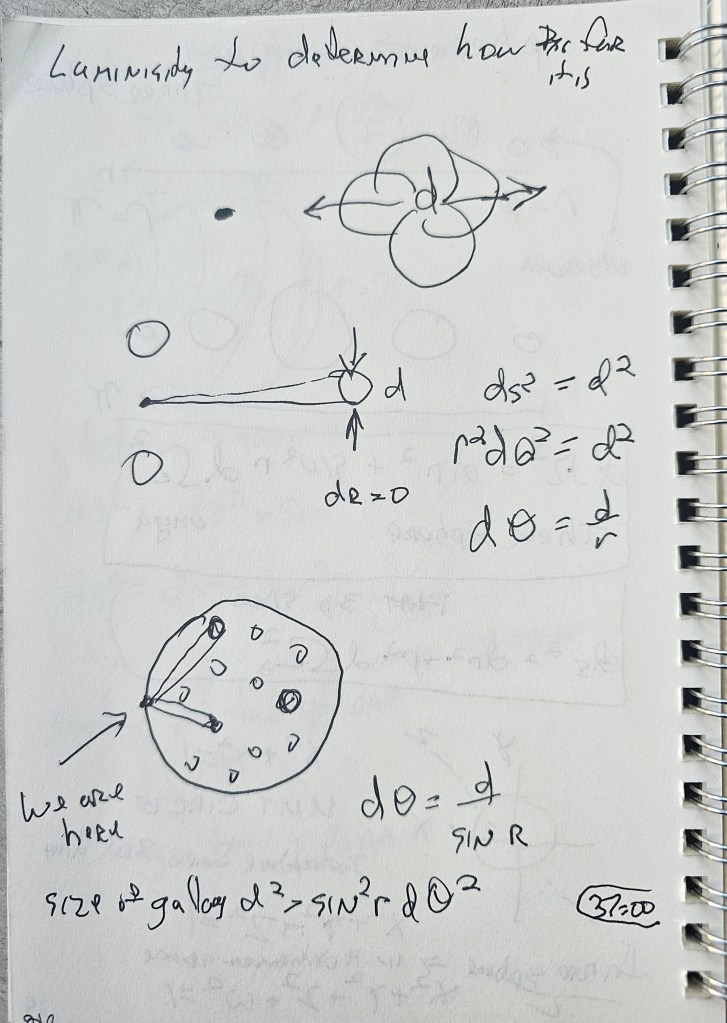 Luminisity to determine how far
it is
d
d
ds² = d²
r²dθ² = d²
dR = 0
dθ = d/r
We are
here
dθ = d/SIN R
size of galaxy d² = SIN² r dθ²
37:00